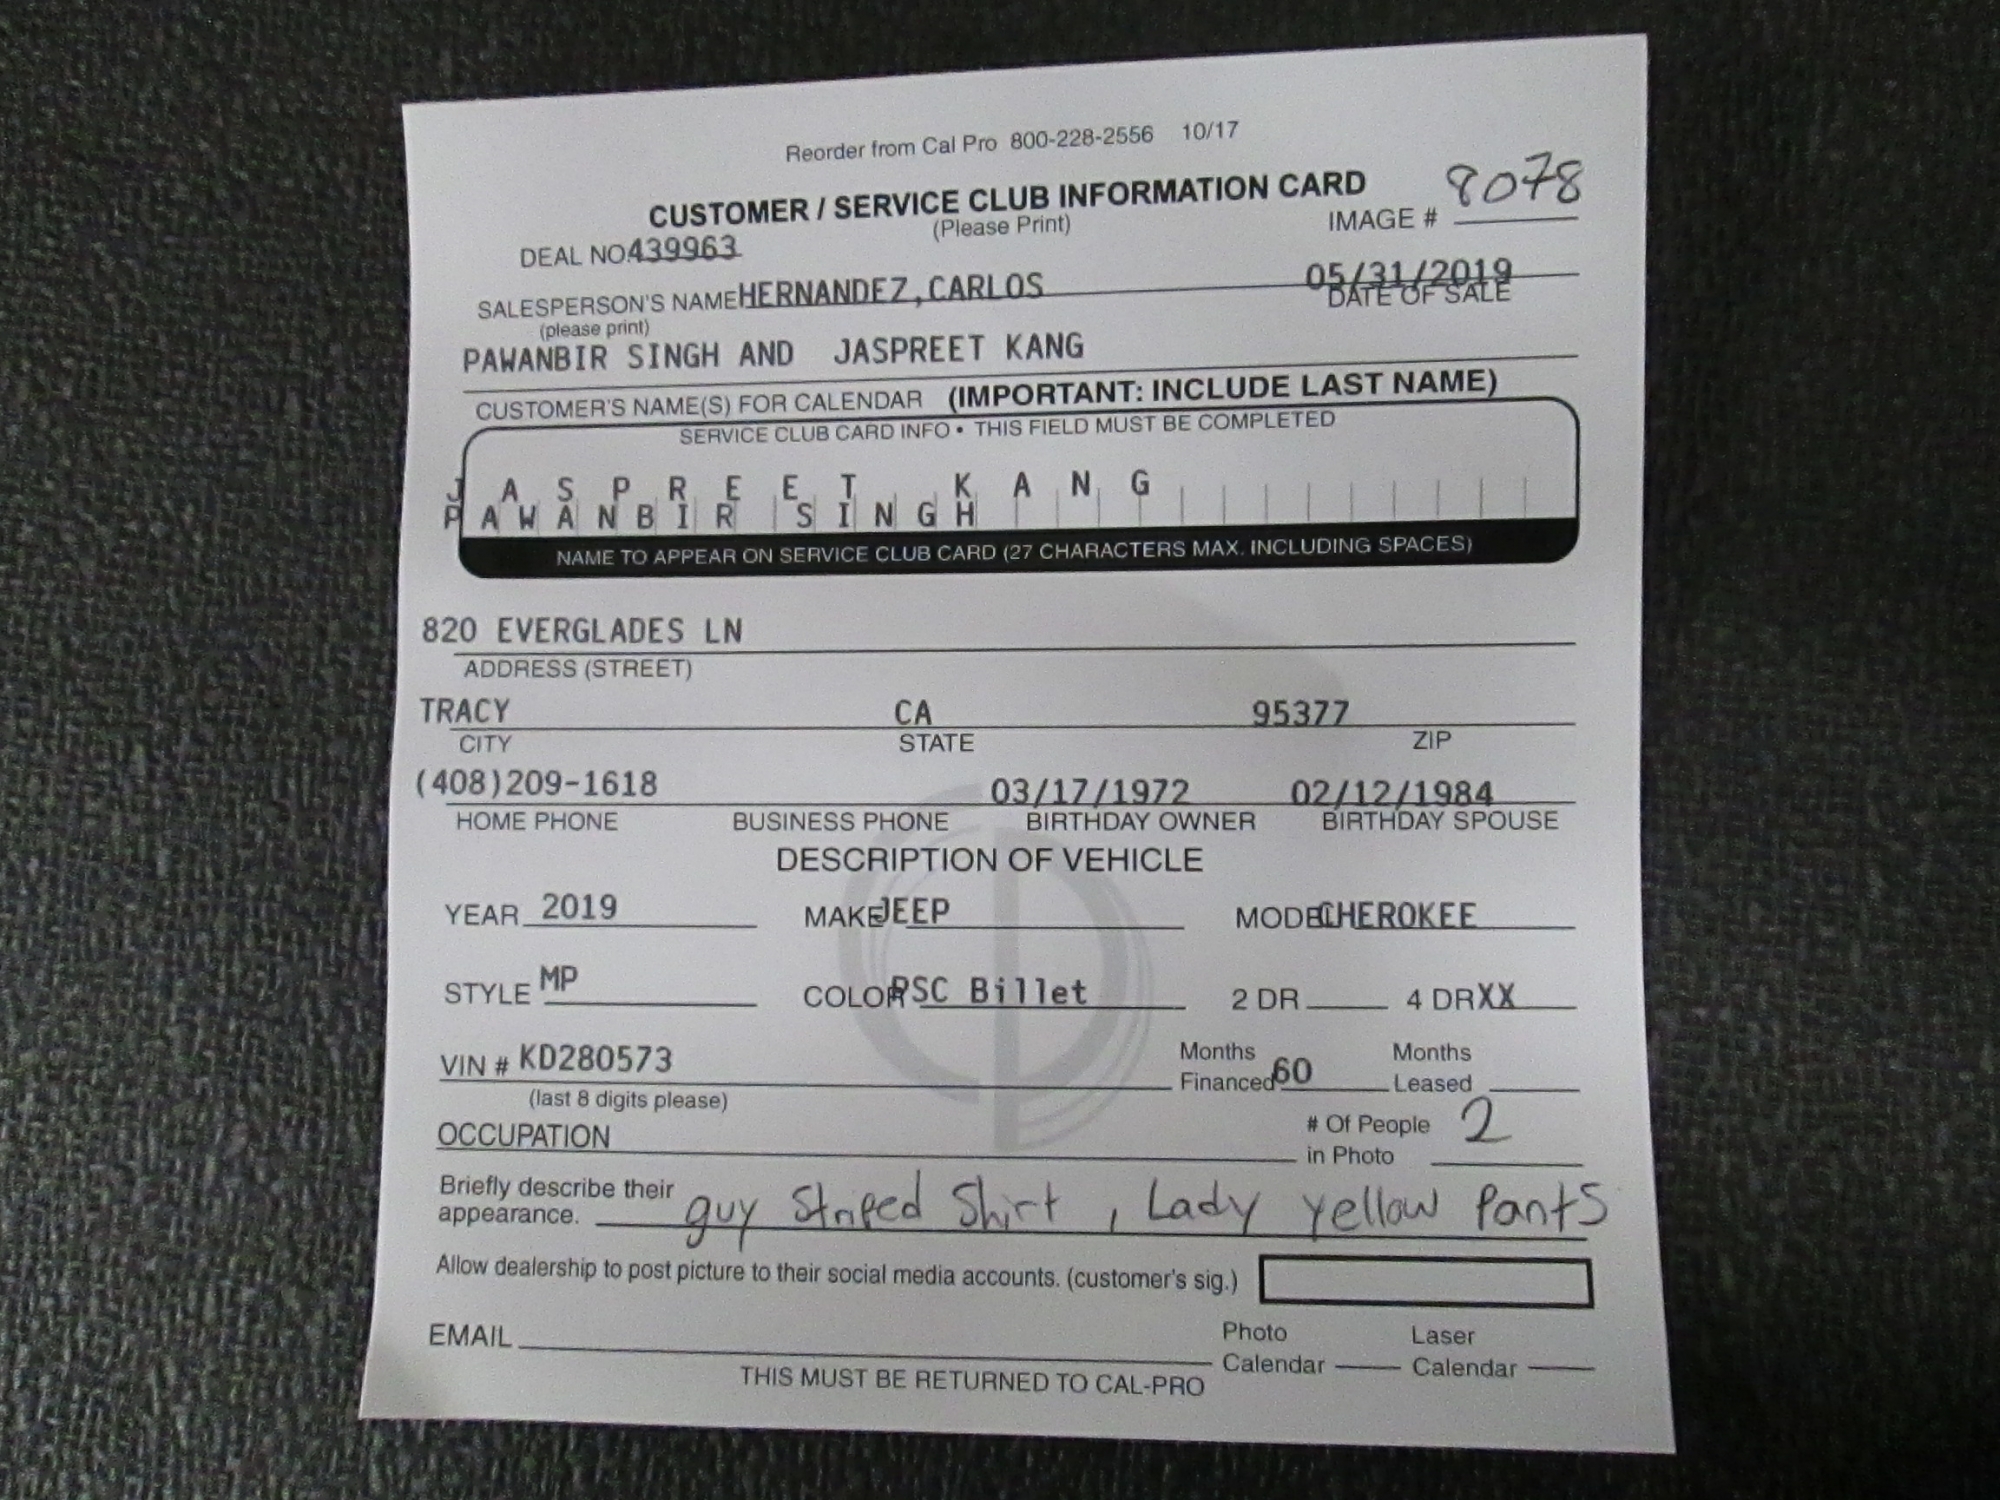 Reorder from Cal Pro 800-228-2556 10/17
CUSTOMER / SERVICE CLUB INFORMATION CARD
(Please Print)
IMAGE # 8078
DEAL NO. 439963
SALESPERSON'S NAME HERNANDEZ, CARLOS 05/31/2019
(please print) DATE OF SALE
PAWANBIR SINGH AND JASPREET KANG
CUSTOMER'S NAME(S) FOR CALENDAR (IMPORTANT: INCLUDE LAST NAME)
SERVICE CLUB CARD INFO • THIS FIELD MUST BE COMPLETED
JASPREET KANG
PAWANBIR SINGH
NAME TO APPEAR ON SERVICE CLUB CARD (27 CHARACTERS MAX. INCLUDING SPACES)
820 EVERGLADES LN
ADDRESS (STREET)
TRACY CA 95377
CITY STATE ZIP
(408)209-1618 03/17/1972 02/12/1984
HOME PHONE BUSINESS PHONE BIRTHDAY OWNER BIRTHDAY SPOUSE
DESCRIPTION OF VEHICLE
YEAR 2019 MAKE JEEP MODEL CHEROKEE
STYLE MP COLOR PSC Billet 2 DR 4 DR XX
VIN # KD280573 Months Financed 60 Months Leased
(last 8 digits please)
OCCUPATION # Of People in Photo 2
Briefly describe their appearance. guy Striped Shirt, Lady yellow Pants
Allow dealership to post picture to their social media accounts. (customer's sig.)
EMAIL Photo Calendar Laser Calendar
THIS MUST BE RETURNED TO CAL-PRO